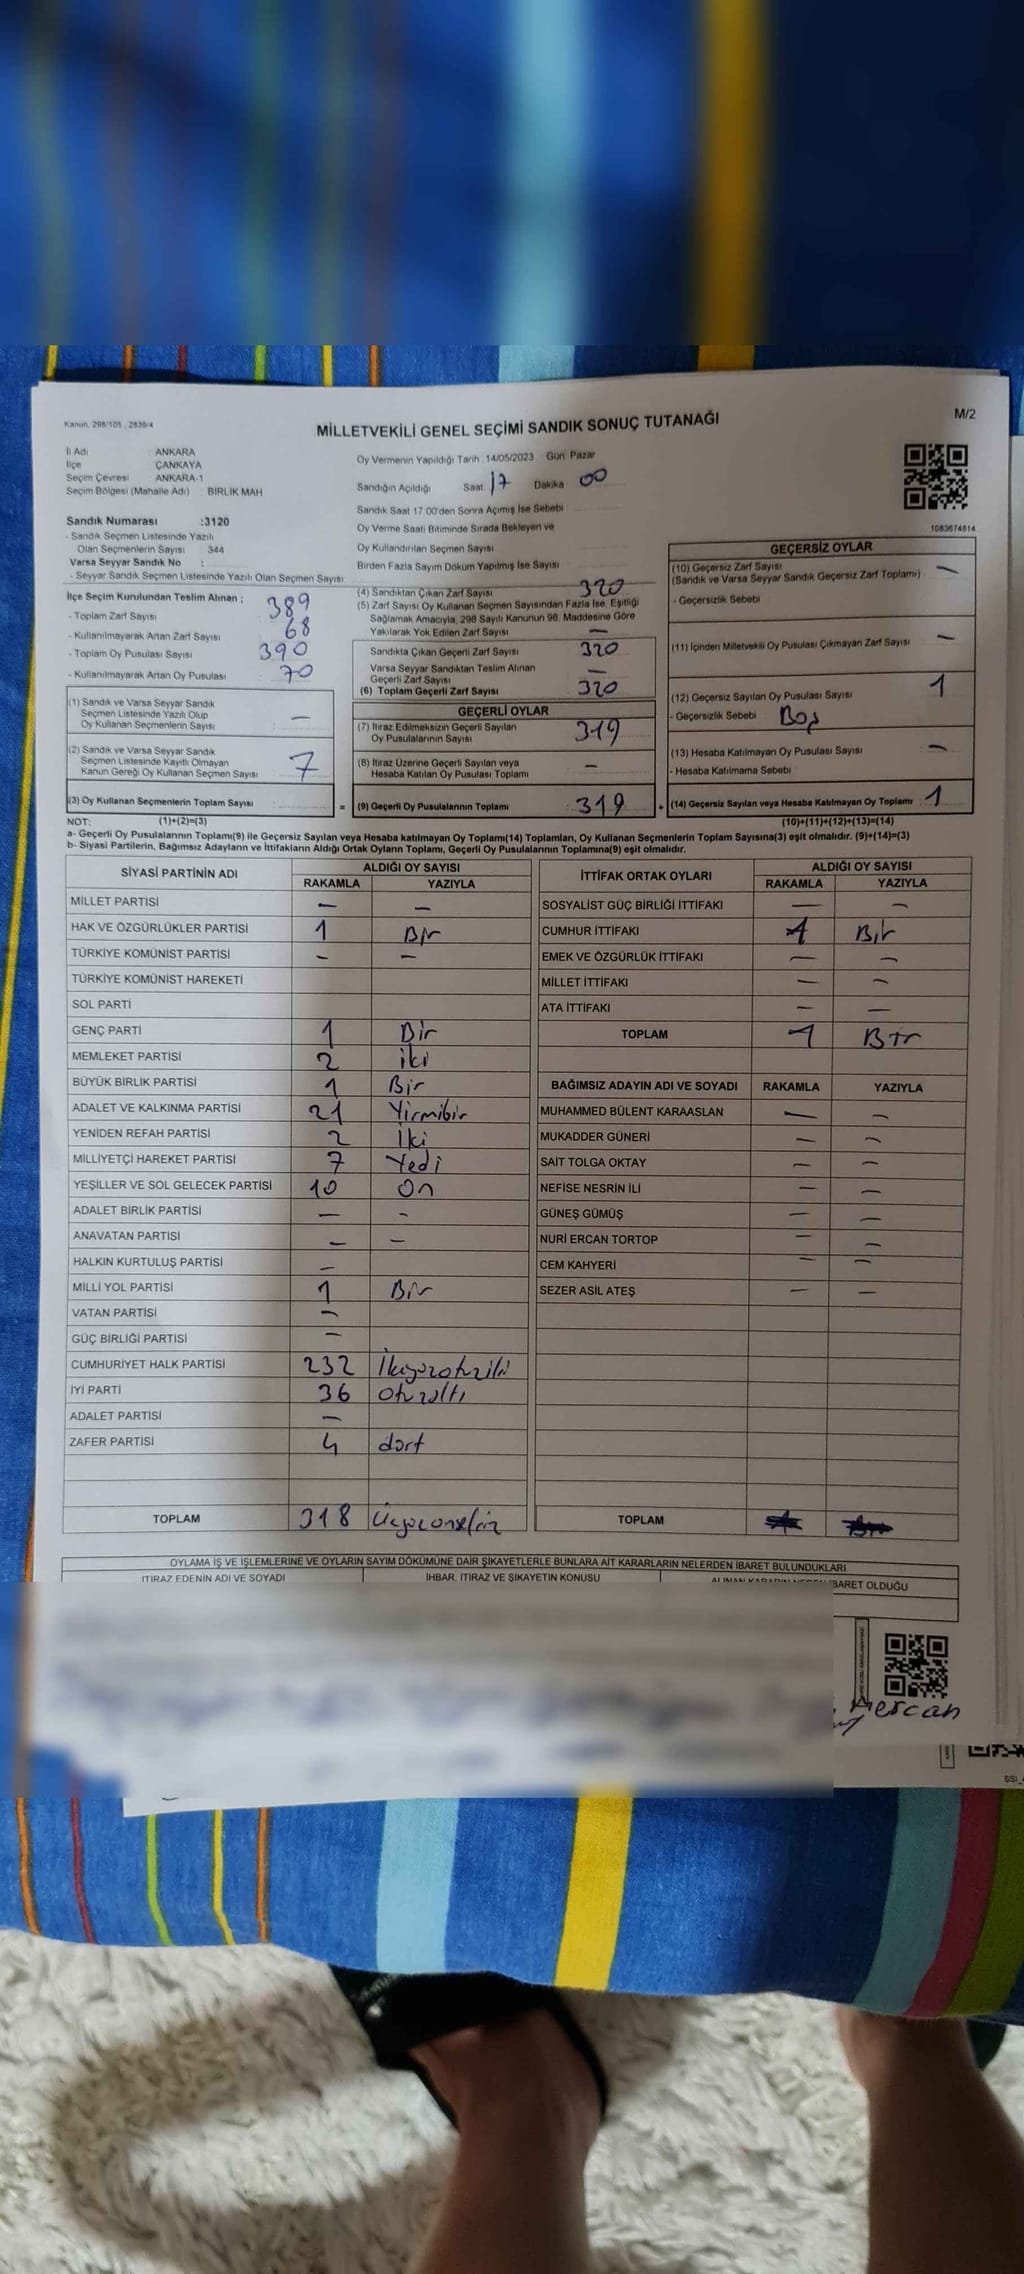 Kanun. 298/105 , 2839/4
MİLLETVEKİLİ GENEL SEÇİMİ SANDIK SONUÇ TUTANAĞI
M/2
İl Adı : ANKARA
İlçe : ÇANKAYA
Seçim Çevresi : ANKARA-1
Seçim Bölgesi (Mahalle Adı) : BİRLİK MAH
Sandık Numarası :3120
- Sandık Seçmen Listesinde Yazılı
Olan Seçmenlerin Sayısı : 344
Varsa Seyyar Sandık No :
- Seyyar Sandık Seçmen Listesinde Yazılı Olan Seçmen Sayısı
Oy Vermenin Yapıldığı Tarih : 14/05/2023 Gün: Pazar
Sandığın Açıldığı Saat 17 Dakika 00
Sandık Saat 17.00'den Sonra Açımış İse Sebebi
Oy Verme Saati Bitiminde Sırada Bekleyen ve
Oy Kullandırılan Seçmen Sayısı
Birden Fazla Sayım Döküm Yapılmış İse Sayısı
1083674814
İlçe Seçim Kurulundan Teslim Alınan ;
- Toplam Zarf Sayısı 389
- Kullanılmayarak Artan Zarf Sayısı 68
- Toplam Oy Pusulası Sayısı 390
- Kullanılmayarak Artan Oy Pusulası 70
(1) Sandık ve Varsa Seyyar Sandık
Seçmen Listesinde Yazılı Olup
Oy Kullanan Seçmenlerin Sayısı —
(2) Sandık ve Varsa Seyyar Sandık
Seçmen Listesinde Kayıtlı Olmayan
Kanun Gereği Oy Kullanan Seçmen Sayısı 7
(3) Oy Kullanan Seçmenlerin Toplam Sayısı
(4) Sandıktan Çıkan Zarf Sayısı 320
(5) Zarf Sayısı Oy Kullanan Seçmen Sayısından Fazla İse, Eşitliği
Sağlamak Amacıyla, 298 Sayılı Kanunun 98. Maddesine Göre
Yakılarak Yok Edilen Zarf Sayısı —
Sandıkta Çıkan Geçerli Zarf Sayısı 320
Varsa Seyyar Sandıktan Teslim Alınan
Geçerli Zarf Sayısı —
(6) Toplam Geçerli Zarf Sayısı 320
GEÇERLİ OYLAR
(7) İtiraz Edilmeksizin Geçerli Sayılan
Oy Pusulalarının Sayısı 319
(8) İtiraz Üzerine Geçerli Sayılan veya
Hesaba Katılan Oy Pusulası Toplamı —
= (9) Geçerli Oy Pusulalarının Toplamı 319 +
GEÇERSİZ OYLAR
(10) Geçersiz Zarf Sayısı —
(Sandık ve Varsa Seyyar Sandık Geçersiz Zarf Toplamı)
- Geçersizlik Sebebi :
(11) İçinden Milletvekili Oy Pusulası Çıkmayan Zarf Sayısı —
(12) Geçersiz Sayılan Oy Pusulası Sayısı 1
- Geçersizlik Sebebi : Boş
(13) Hesaba Katılmayan Oy Pusulası Sayısı —
- Hesaba Katılmama Sebebi
(14) Geçersiz Sayılan veya Hesaba Katılmayan Oy Toplamı 1
NOT: (1)+(2)=(3) (10)+(11)+(12)+(13)=(14)
a- Geçerli Oy Pusulalarının Toplamı(9) ile Geçersiz Sayılan veya Hesaba katılmayan Oy Toplamı(14) Toplamları, Oy Kullanan Seçmenlerin Toplam Sayısına(3) eşit olmalıdır. (9)+(14)=(3)
b- Siyasi Partilerin, Bağımsız Adayların ve İttifakların Aldığı Ortak Oyların Toplamı, Geçerli Oy Pusulalarının Toplamına(9) eşit olmalıdır.
SİYASİ PARTİNİN ADI ALDIĞI OY SAYISI
RAKAMLA YAZIYLA
MİLLET PARTİSİ — —
HAK VE ÖZGÜRLÜKLER PARTİSİ 1 Bir
TÜRKİYE KOMÜNİST PARTİSİ — —
TÜRKİYE KOMÜNİST HAREKETİ
SOL PARTİ
GENÇ PARTİ 1 Bir
MEMLEKET PARTİSİ 2 iki
BÜYÜK BİRLİK PARTİSİ 1 Bir
ADALET VE KALKINMA PARTİSİ 21 Yirmibir
YENİDEN REFAH PARTİSİ 2 İki
MİLLİYETÇİ HAREKET PARTİSİ 7 Yedi
YEŞİLLER VE SOL GELECEK PARTİSİ 10 On
ADALET BİRLİK PARTİSİ — —
ANAVATAN PARTİSİ — —
HALKIN KURTULUŞ PARTİSİ —
MİLLİ YOL PARTİSİ 1 Bir
VATAN PARTİSİ —
GÜÇ BİRLİĞİ PARTİSİ —
CUMHURİYET HALK PARTİSİ 232 İkiyüzotuziki
İYİ PARTİ 36 otuzaltı
ADALET PARTİSİ —
ZAFER PARTİSİ 4 dört
TOPLAM 318 Üçyüzonsekiz
İTTİFAK ORTAK OYLARI ALDIĞI OY SAYISI
RAKAMLA YAZIYLA
SOSYALİST GÜÇ BİRLİĞİ İTTİFAKI — —
CUMHUR İTTİFAKI 1 Bir
EMEK VE ÖZGÜRLÜK İTTİFAKI — —
MİLLET İTTİFAKI — —
ATA İTTİFAKI — —
TOPLAM 1 Bir
BAĞIMSIZ ADAYIN ADI VE SOYADI RAKAMLA YAZIYLA
MUHAMMED BÜLENT KARAASLAN — —
MUKADDER GÜNERİ — —
SAİT TOLGA OKTAY — —
NEFİSE NESRİN İLİ — —
GÜNEŞ GÜMÜŞ — —
NURİ ERCAN TORTOP — —
CEM KAHYERİ — —
SEZER ASİL ATEŞ — —
TOPLAM
OYLAMA İŞ VE İŞLEMLERİNE VE OYLARIN SAYIM DÖKÜMÜNE DAİR ŞİKAYETLERLE BUNLARA AİT KARARLARIN NELERDEN İBARET BULUNDUKLARI
İTİRAZ EDENİN ADI VE SOYADI İHBAR, İTİRAZ VE ŞİKAYETİN KONUSU ALINAN KARARIN NEDEN İBARET OLDUĞU
Mercan